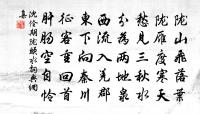 陇山飛落葉
陇雁度寒天
愁見三秋水
分為两地泉
西流入羌郡
東下向秦川
征客重回首
肝肠空自怜
沈佺期陇頭水詞典網
集